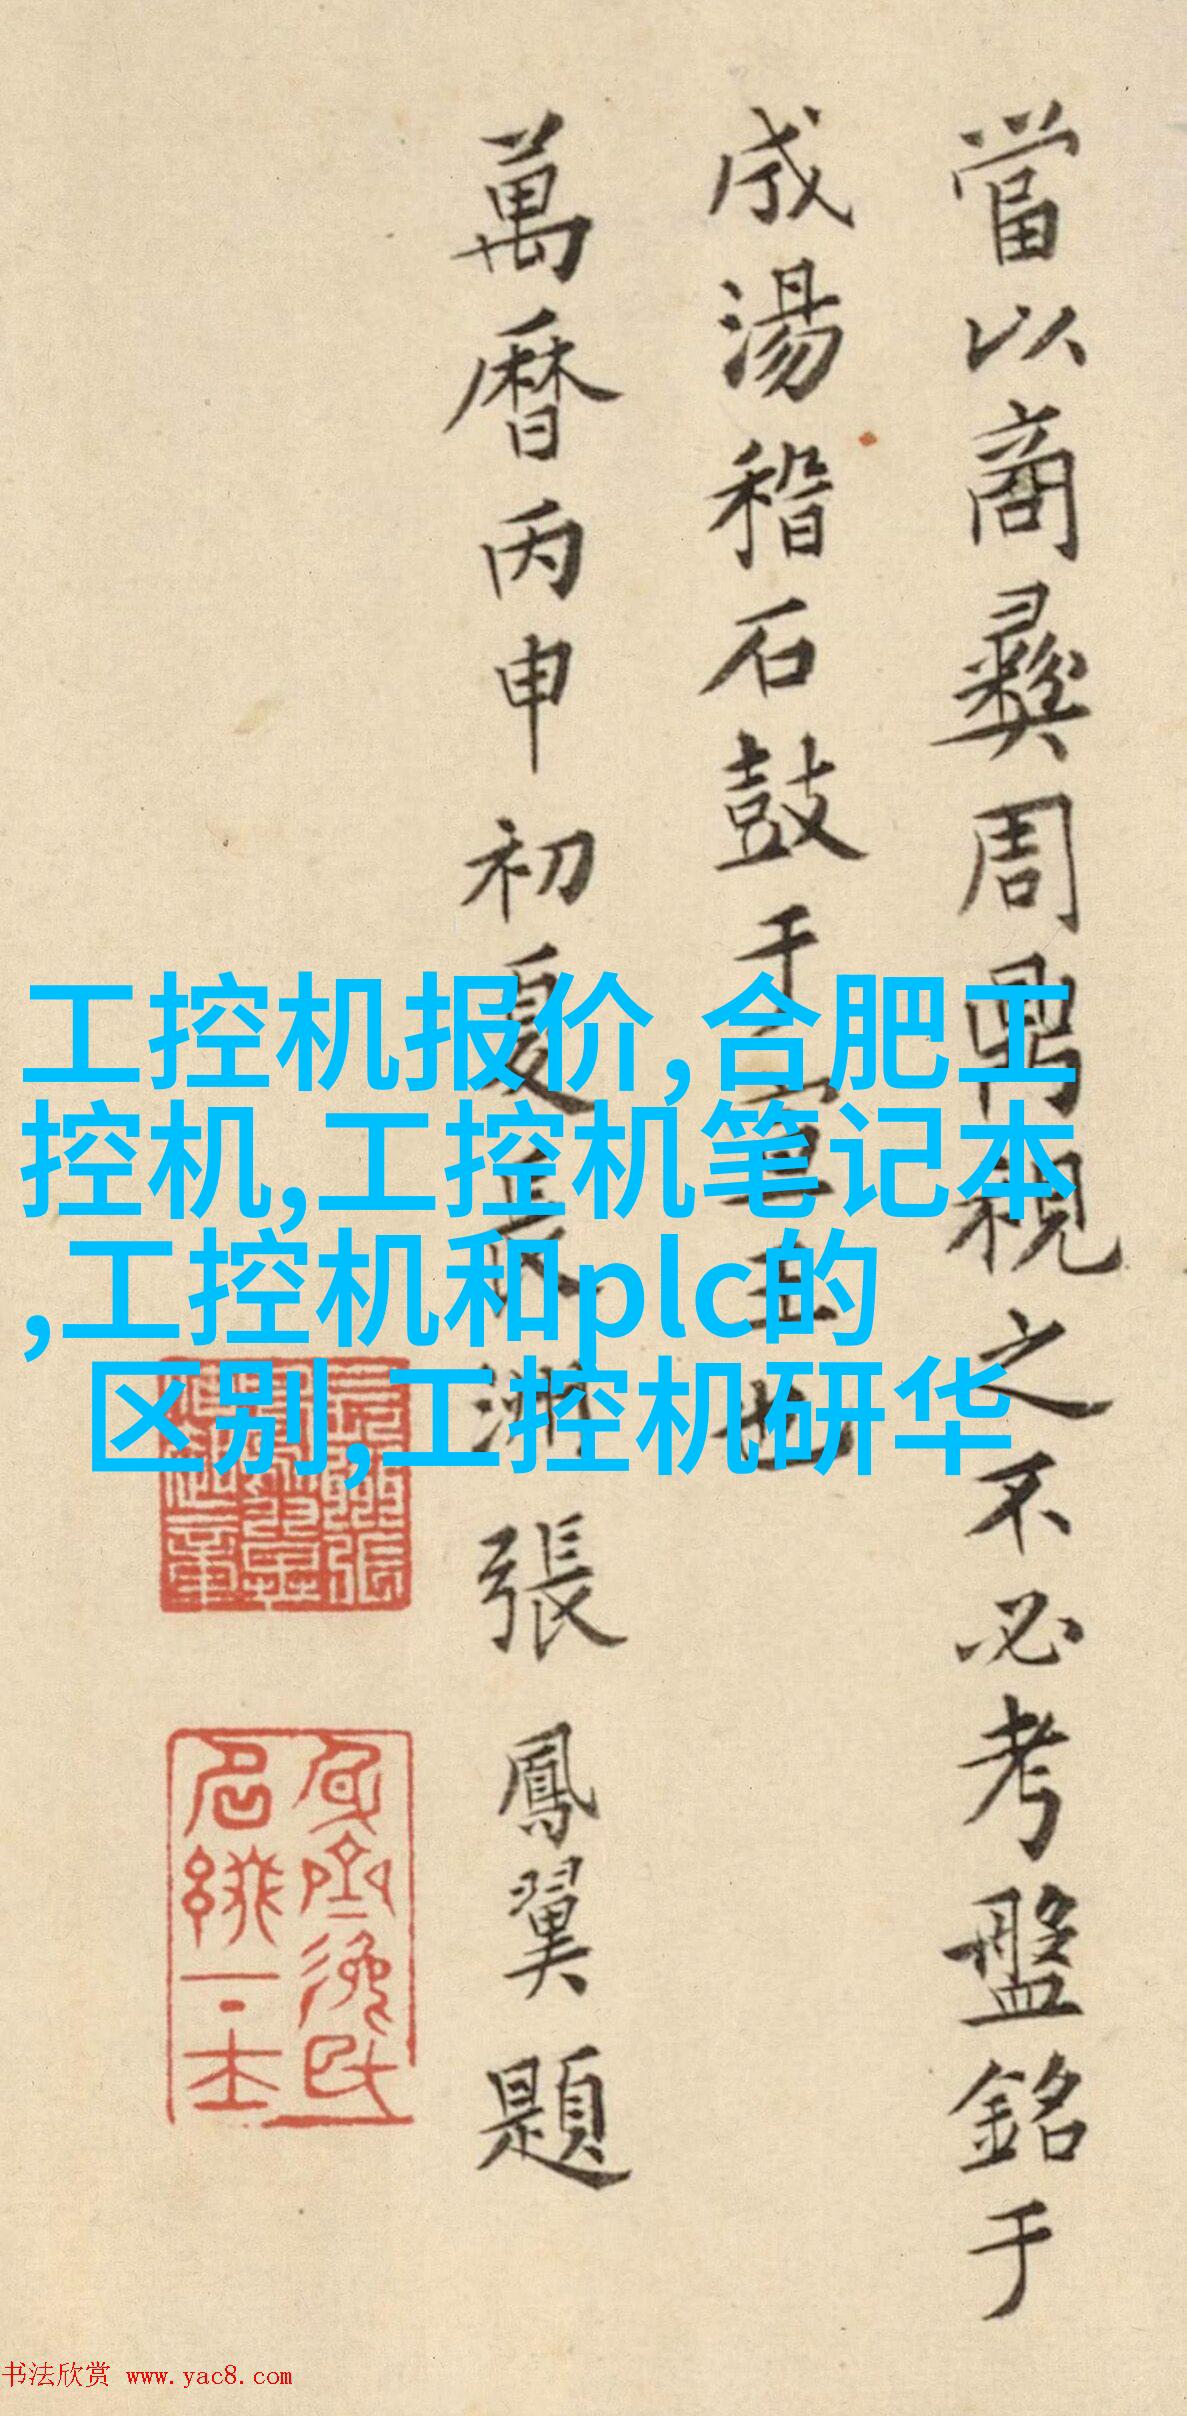 當以商彝周鼎視之不必考盤銘于
成湯稽石鼓于宣王也
萬曆丙申初夏長洲張鳳翼題
工控机报价,合肥工
控机,工控机笔记本
,工控机和plc的
区别,工控机研华
书法欣赏 www.yac8.com